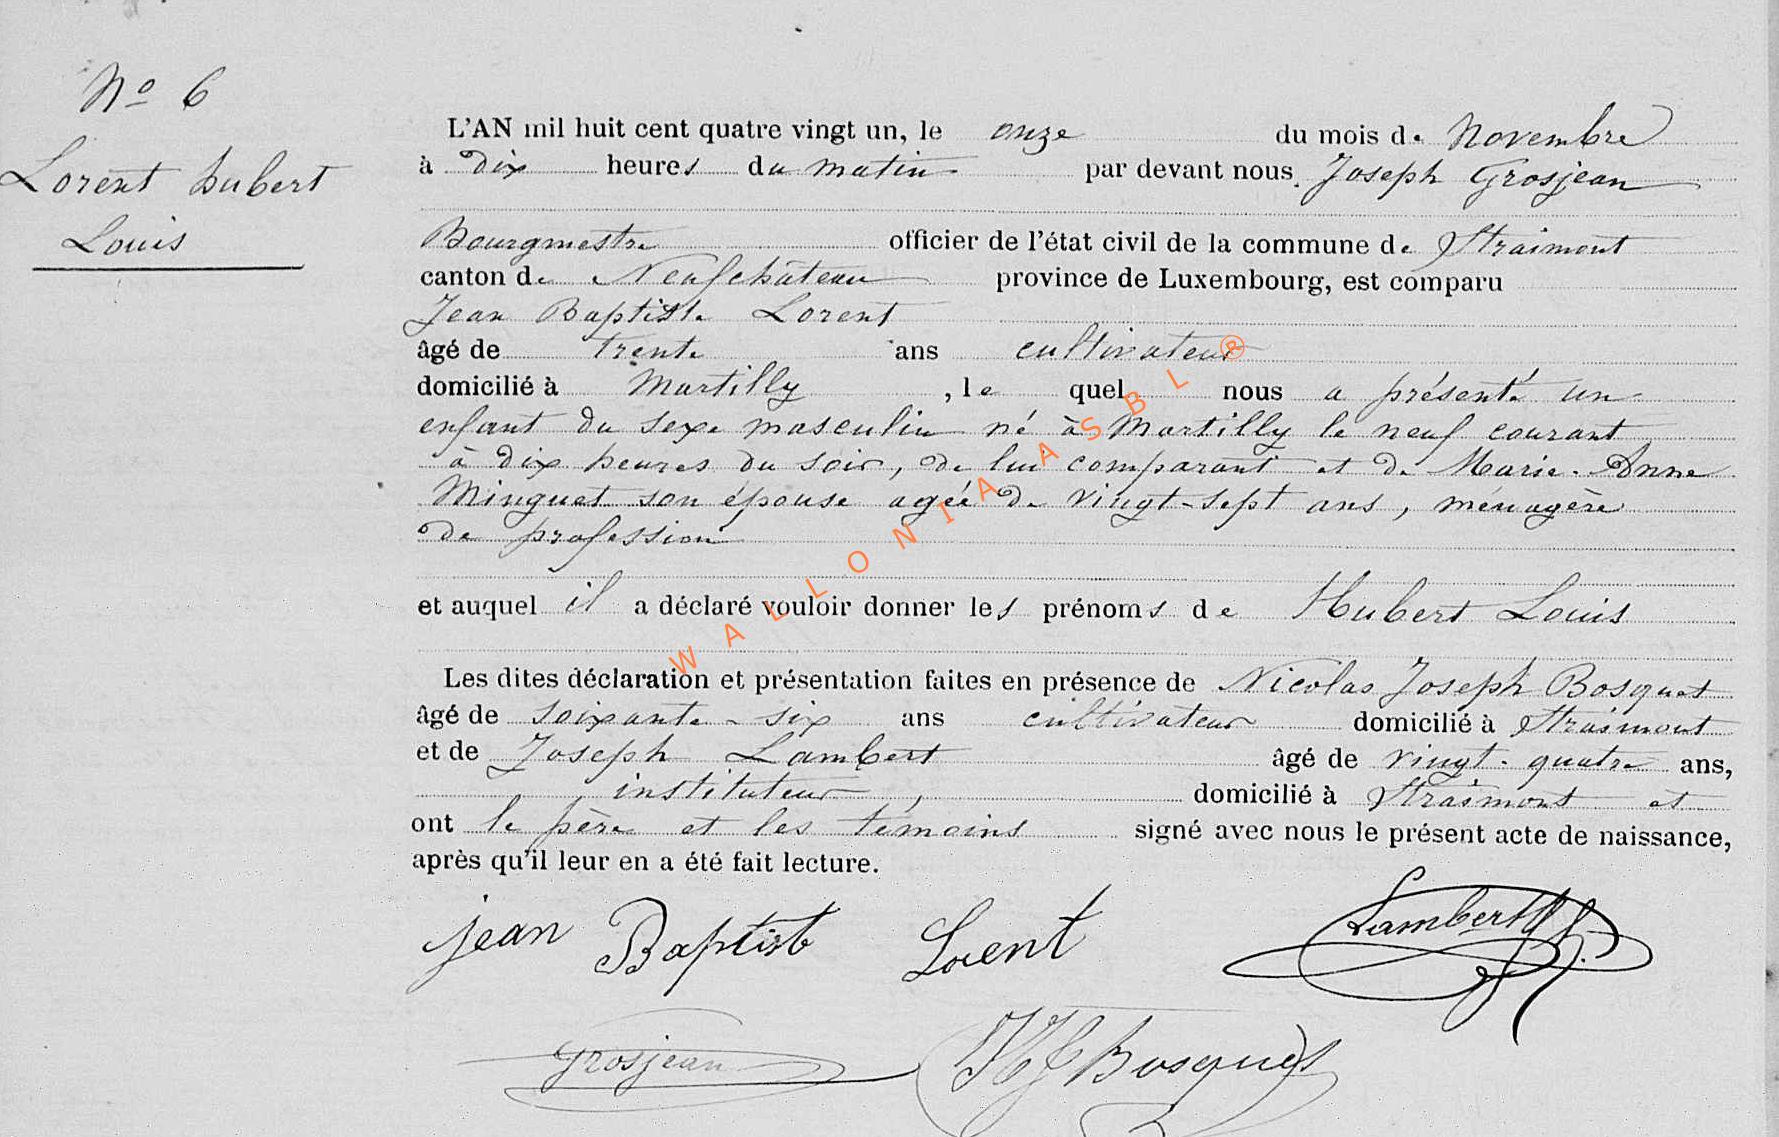 No 6
Lorent hubert
Louis
L'AN mil huit cent quatre vingt un, le onze du mois de Novembre
à dix heures du matin par devant nous Joseph Grosjean
Bourgmestre officier de l'état civil de la commune de Straimont
canton de Neufchâteau province de Luxembourg, est comparu
Jean Baptiste Lorent
âgé de trente ans cultivateur
domicilié à Martilly, le quel nous a présenté un
enfant du sexe masculin né à Martilly le neuf courant
à dix heures du soir, de lui comparant et de Marie-Anne
Minguet son épouse agée de vingt-sept ans, ménagère
de profession
et auquel il a déclaré vouloir donner les prénoms de Hubert Louis
Les dites déclaration et présentation faites en présence de Nicolas Joseph Bosquet
âgé de soixante-six ans cultivateur domicilié à Straimont
et de Joseph Lambert âgé de vingt-quatre ans,
instituteur, domicilié à Straimont et
ont le père et les témoins signé avec nous le présent acte de naissance,
après qu'il leur en a été fait lecture.
jean Baptist Lorent Lambert J.
Grosjean NJ Bosquet
WALLONIA ASBL ®